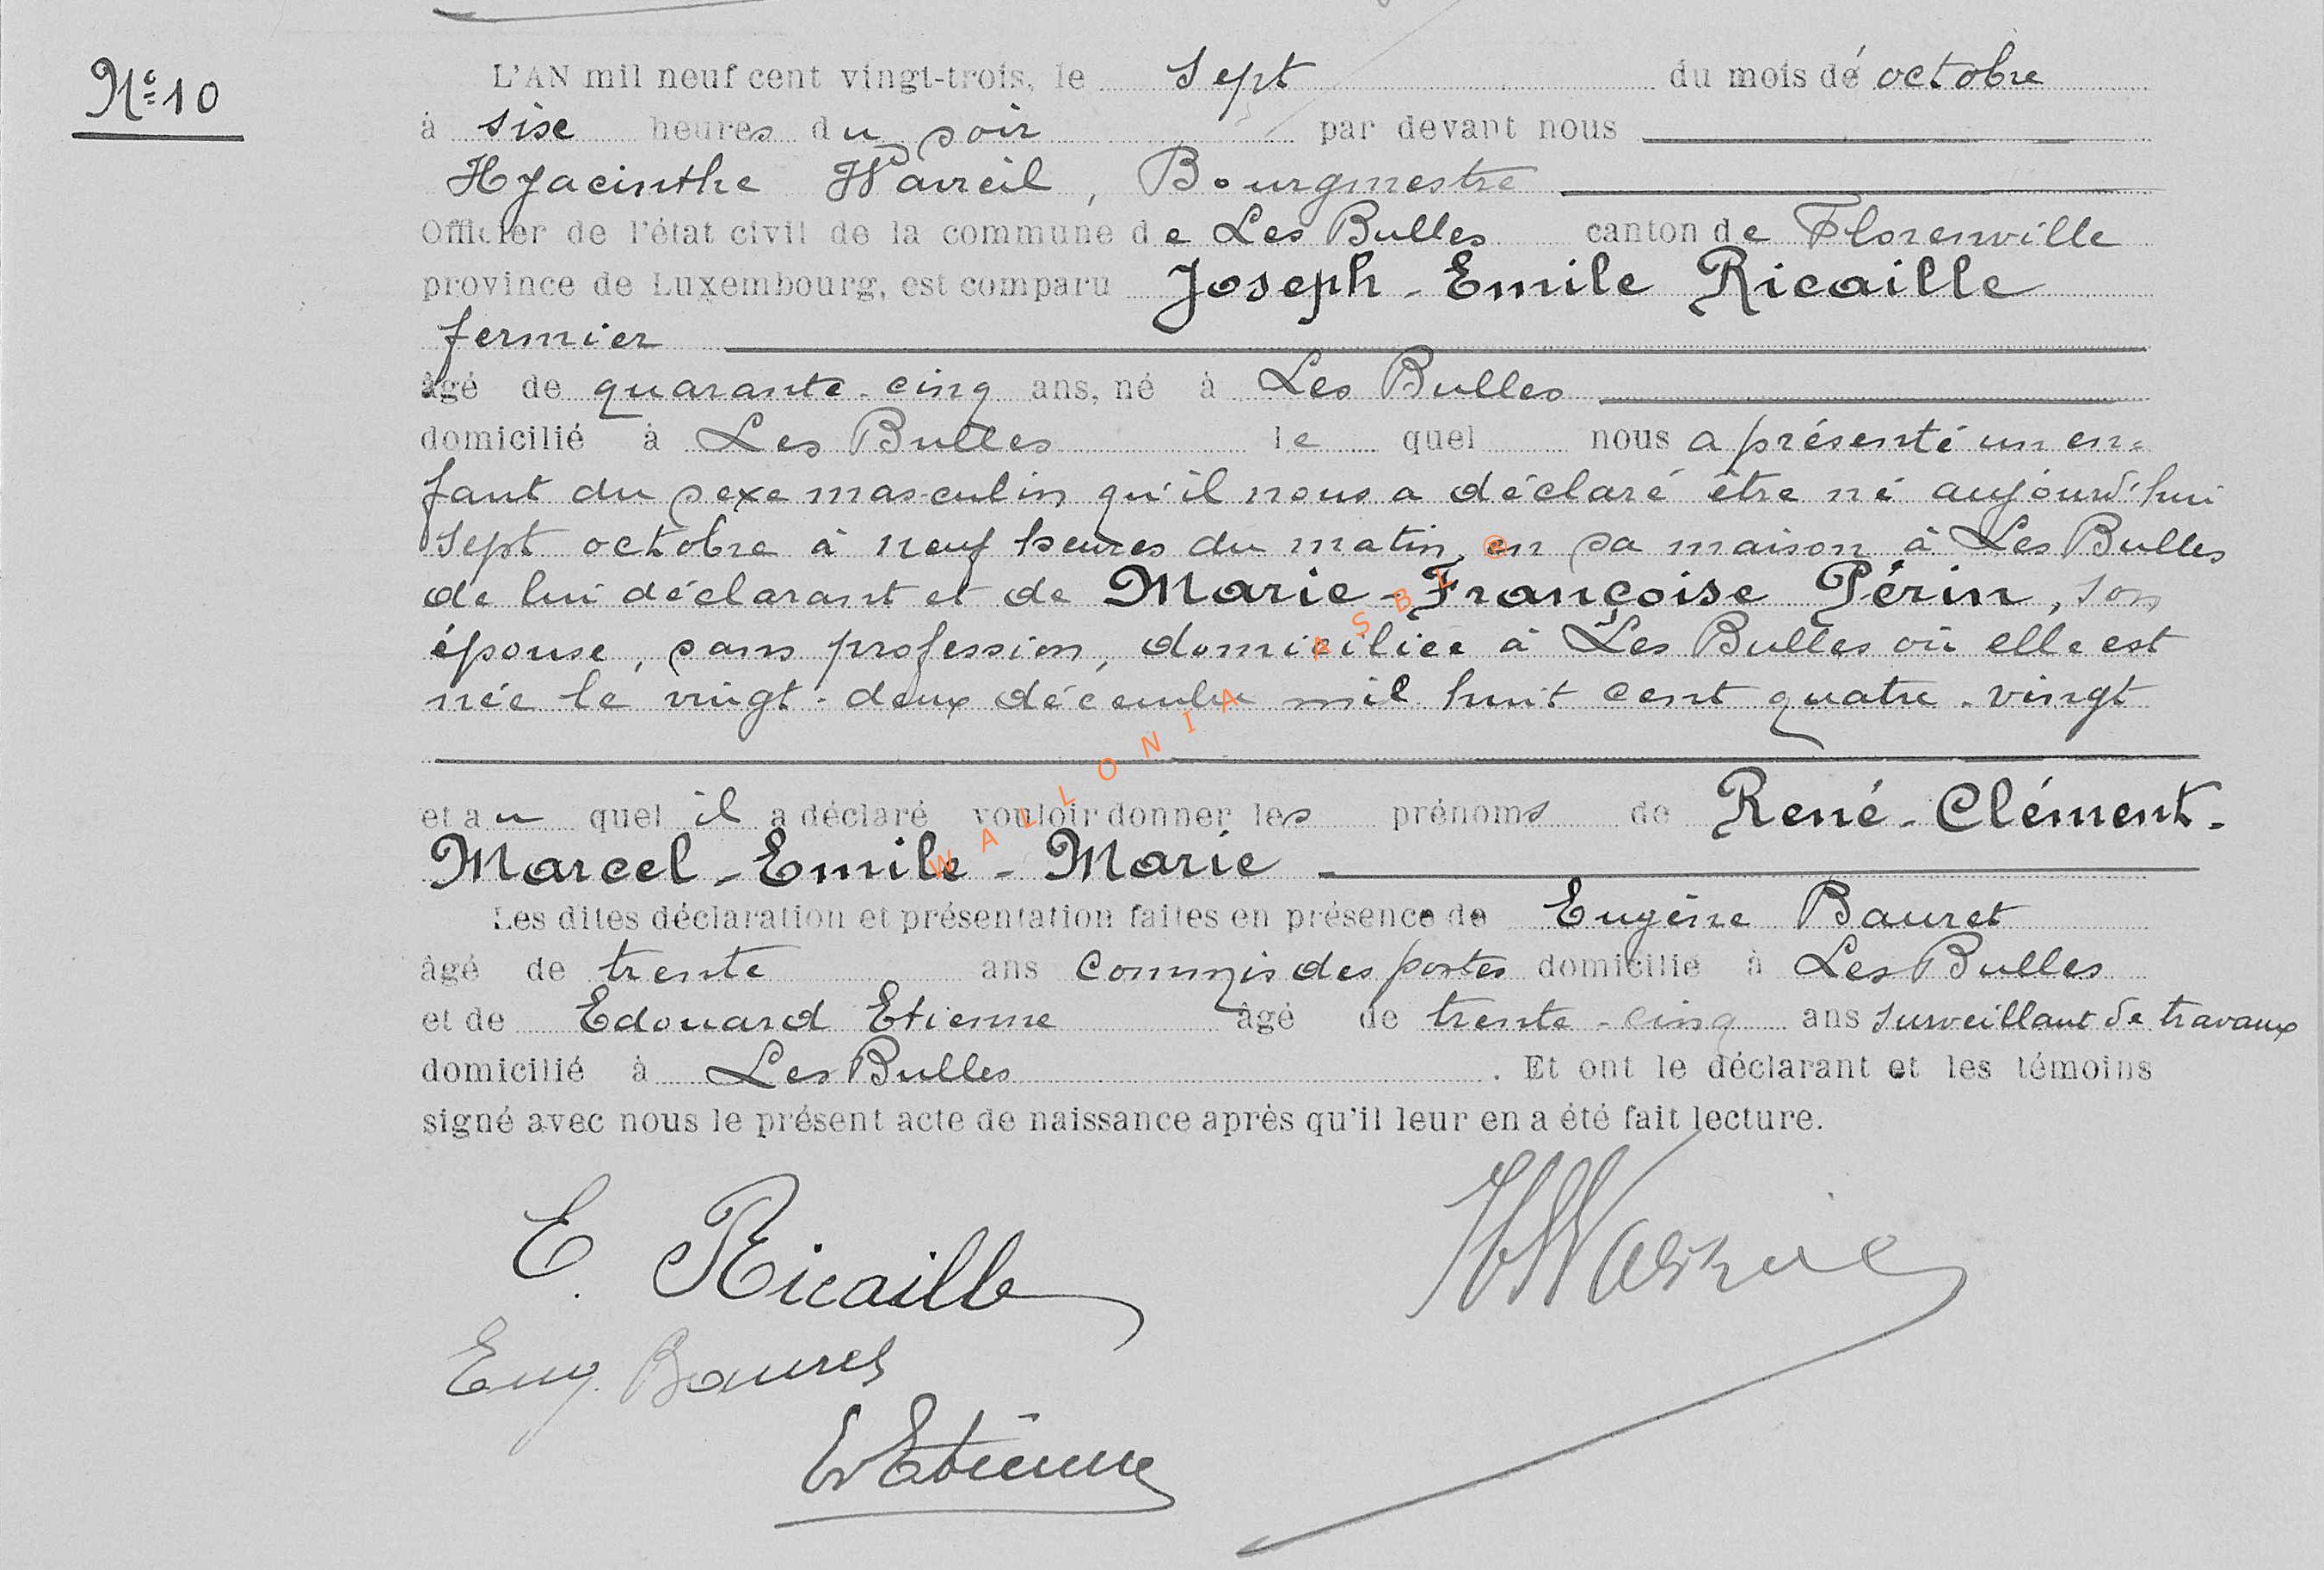 N° 10
L'AN mil neuf cent vingt-trois, le sept du mois de octobre
à six heures du soir par devant nous
Hyacinthe Wavreil, Bourgmestre
Officier de l'état civil de la commune de Les Bulles canton de Florenville
province de Luxembourg, est comparu Joseph-Emile Ricaille
fermier
âgé de quarante-cinq ans, né à Les Bulles
domicilié à Les Bulles le quel nous a présenté un en=
fant du sexe masculin qu'il nous a déclaré être né aujourd'hui
sept octobre à neuf heures du matin, en sa maison à Les Bulles
de lui déclarant et de Marie-Françoise Périn, son
épouse, sans profession, domiciliée à Les Bulles où elle est
née le vingt-deux décembre mil huit cent quatre-vingt
et au quel il a déclaré vouloir donner les prénoms de René-Clément-
Marcel-Emile-Marie
Les dites déclaration et présentation faites en présence de Eugène Bauret
âgé de trente ans commis des postes domicilié à Les Bulles
et de Edouard Etienne âgé de trente-cinq ans surveillant de travaux
domicilié à Les Bulles. Et ont le déclarant et les témoins
signé avec nous le présent acte de naissance après qu'il leur en a été fait lecture.
E. Ricaille
Eug. Bauret
Etienne
WALLONIA ASBL ©